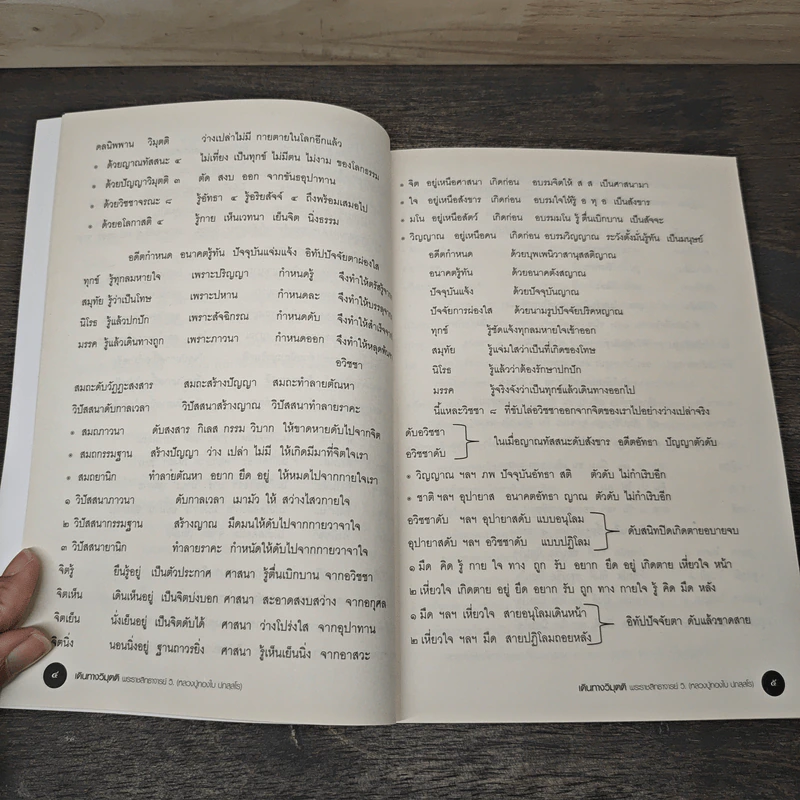 ดลนิพพาน วิมุตติ ว่างเปล่าไม่มี กายตายในโลกอีกแล้ว
• ด้วยญาณทัสสนะ ๔ ไม่เที่ยง เป็นทุกข์ ไม่มีตน ไม่งาม ของโลกธรรม
• ด้วยปัญญาวิมุตติ ๓ ตัด สงบ ออก จากขันธอุปาทาน
• ด้วยวิชชาจรณะ ๘ รู้อัทธา ๔ รู้อริยสัจจ์ ๔ ถึงพร้อมเสมอไป
• ด้วยอโลกาสติ ๔ รู้กาย เห็นเวทนา เย็นจิต นิ่งธรรม
อดีตกำหนด อนาคตรู้ทัน ปัจจุบันแจ่มแจ้ง อิทัปปัจจัยตาผ่องใส
ทุกข์ รู้ทุกลมหายใจ เพราะปริญญา กำหนดรู้ จึงทำให้ตรัสรู้จาก
สมุทัย รู้ว่าเป็นโทษ เพราะปหาน กำหนดละ จึงทำให้บรรลุจาก
นิโรธ รู้แล้วปกปัก เพราะสัจฉิกรณ กำหนดดับ จึงทำให้สำเร็จจาก
มรรค รู้แล้วเดินทางถูก เพราะภาวนา กำหนดออก จึงทำให้หลุดพ้นจาก
อวิชชา
สมถะดับวัฏฏะสงสาร สมถะสร้างปัญญา สมถะทำลายตัณหา
วิปัสสนาดับกาลเวลา วิปัสสนาสร้างญาณ วิปัสสนาทำลายราคะ
• สมถภาวนา ดับสงสาร กิเลส กรรม วิบาก ให้ขาดหายดับไปจากจิต
• สมถกรรมฐาน สร้างปัญญา ว่าง เปล่า ไม่มี ให้เกิดมีมาที่จิตใจเรา
• สมถยานิก ทำลายตัณหา อยาก ยึด อยู่ ให้หมดไปจากกายใจเรา
๑ วิปัสสนาภาวนา ดับกาลเวลา เมามัว ให้ สว่างไสวกายใจ
๒ วิปัสสนากรรมฐาน สร้างญาณ มืดมนให้ดับไปจากกายวาจาใจ
๓ วิปัสสนายานิก ทำลายราคะ กำหนัดให้ดับไปจากกายวาจาใจ
จิตรู้ ยืนรู้อยู่ เป็นตัวประกาศ ศาสนา รู้ตื่นเบิกบาน จากอวิชชา
จิตเห็น เดินเห็นอยู่ เป็นจิตบ่งบอก ศาสนา สะอาดสงบสว่าง จากอกุศล
จิตเย็น นั่งเย็นอยู่ เป็นจิตดับได้ ศาสนา ว่างโปร่งใส จากอุปาทาน
จิตนิ่ง นอนนิ่งอยู่ ฐานถาวรยิ่ง ศาสนา รู้เห็นเย็นนิ่ง จากอาสวะ
๔ เดินทางวิมุตติ พระราชสิทธาจารย์ วิ. (หลวงปู่ทองใบ ปภสฺสโร)
• จิต อยู่เหนือศาสนา เกิดก่อน อบรมจิตให้ ส ส เป็นศาสนามา
• ใจ อยู่เหนือสังขาร เกิดก่อน อบรมใจให้รู้ อ ทุ อ เป็นสังขาร
• มโน อยู่เหนือสัตว์ เกิดก่อน อบรมมโน รู้ ตื่นเบิกบาน เป็นสัจจะ
• วิญญาณ อยู่เหนือคน เกิดก่อน อบรมวิญญาณ ระวังตั้งมั่นรู้ทัน เป็นมนุษย์
อดีตกำหนด ด้วยบุพเพนิวาสานุสสติญาณ
อนาคตรู้ทัน ด้วยอนาคตังสญาณ
ปัจจุบันแจ้ง ด้วยปัจจุบันญาณ
ปัจจัยการผ่องใส ด้วยนามรูปปัจจัยปริคหญาณ
ทุกข์ รู้ชัดแจ้งทุกลมหายใจเข้าออก
สมุทัย รู้แจ่มใสว่าเป็นที่เกิดของโทษ
นิโรธ รู้แล้วว่าต้องรักษาปกปัก
มรรค รู้จริงจังว่าเป็นทุกข์แล้วเดินทางออกไป
นี้แหละวิชชา ๘ ที่ขับไล่อวิชชาออกจากจิตของเราไปอย่างว่างเปล่าจริง
ดับอวิชชา
อวิชชาดับ
ในเมื่อญาณทัสสนะดับสังขาร อดีตอัทธา ปัญญาตัวดับ
• วิญญาณ ฯลฯ ภพ ปัจจุบันอัทธา สติ ตัวดับ ไม่กำเริบอีก
• ชาติ ฯลฯ อุปายาส อนาคตอัทธา ญาณ ตัวดับ ไม่กำเริบอีก
อวิชชาดับ ฯลฯ อุปายาสดับ แบบอนุโลม
อุปายาสดับ ฯลฯ อวิชชาดับ แบบปฏิโลม
ดับสนิทปิดเกิดตายอบายจบ
๑ มืด คิด รู้ กาย ใจ ทาง ถูก รับ อยาก ยึด อยู่ เกิดตาย เหี่ยวใจ หน้า
๒ เหี่ยวใจ เกิดตาย อยู่ ยึด อยาก รับ ถูก ทาง กายใจ รู้ คิด มืด หลัง
๑ มืด ฯลฯ เหี่ยวใจ สายอนุโลมเดินหน้า
๒ เหี่ยวใจ ฯลฯ มืด สายปฏิโลมถอยหลัง
อิทัปปัจจัยตา ดับแล้วขาดสาย
เดินทางวิมุตติ พระราชสิทธาจารย์ วิ. (หลวงปู่ทองใบ ปภสฺสโร) ๕